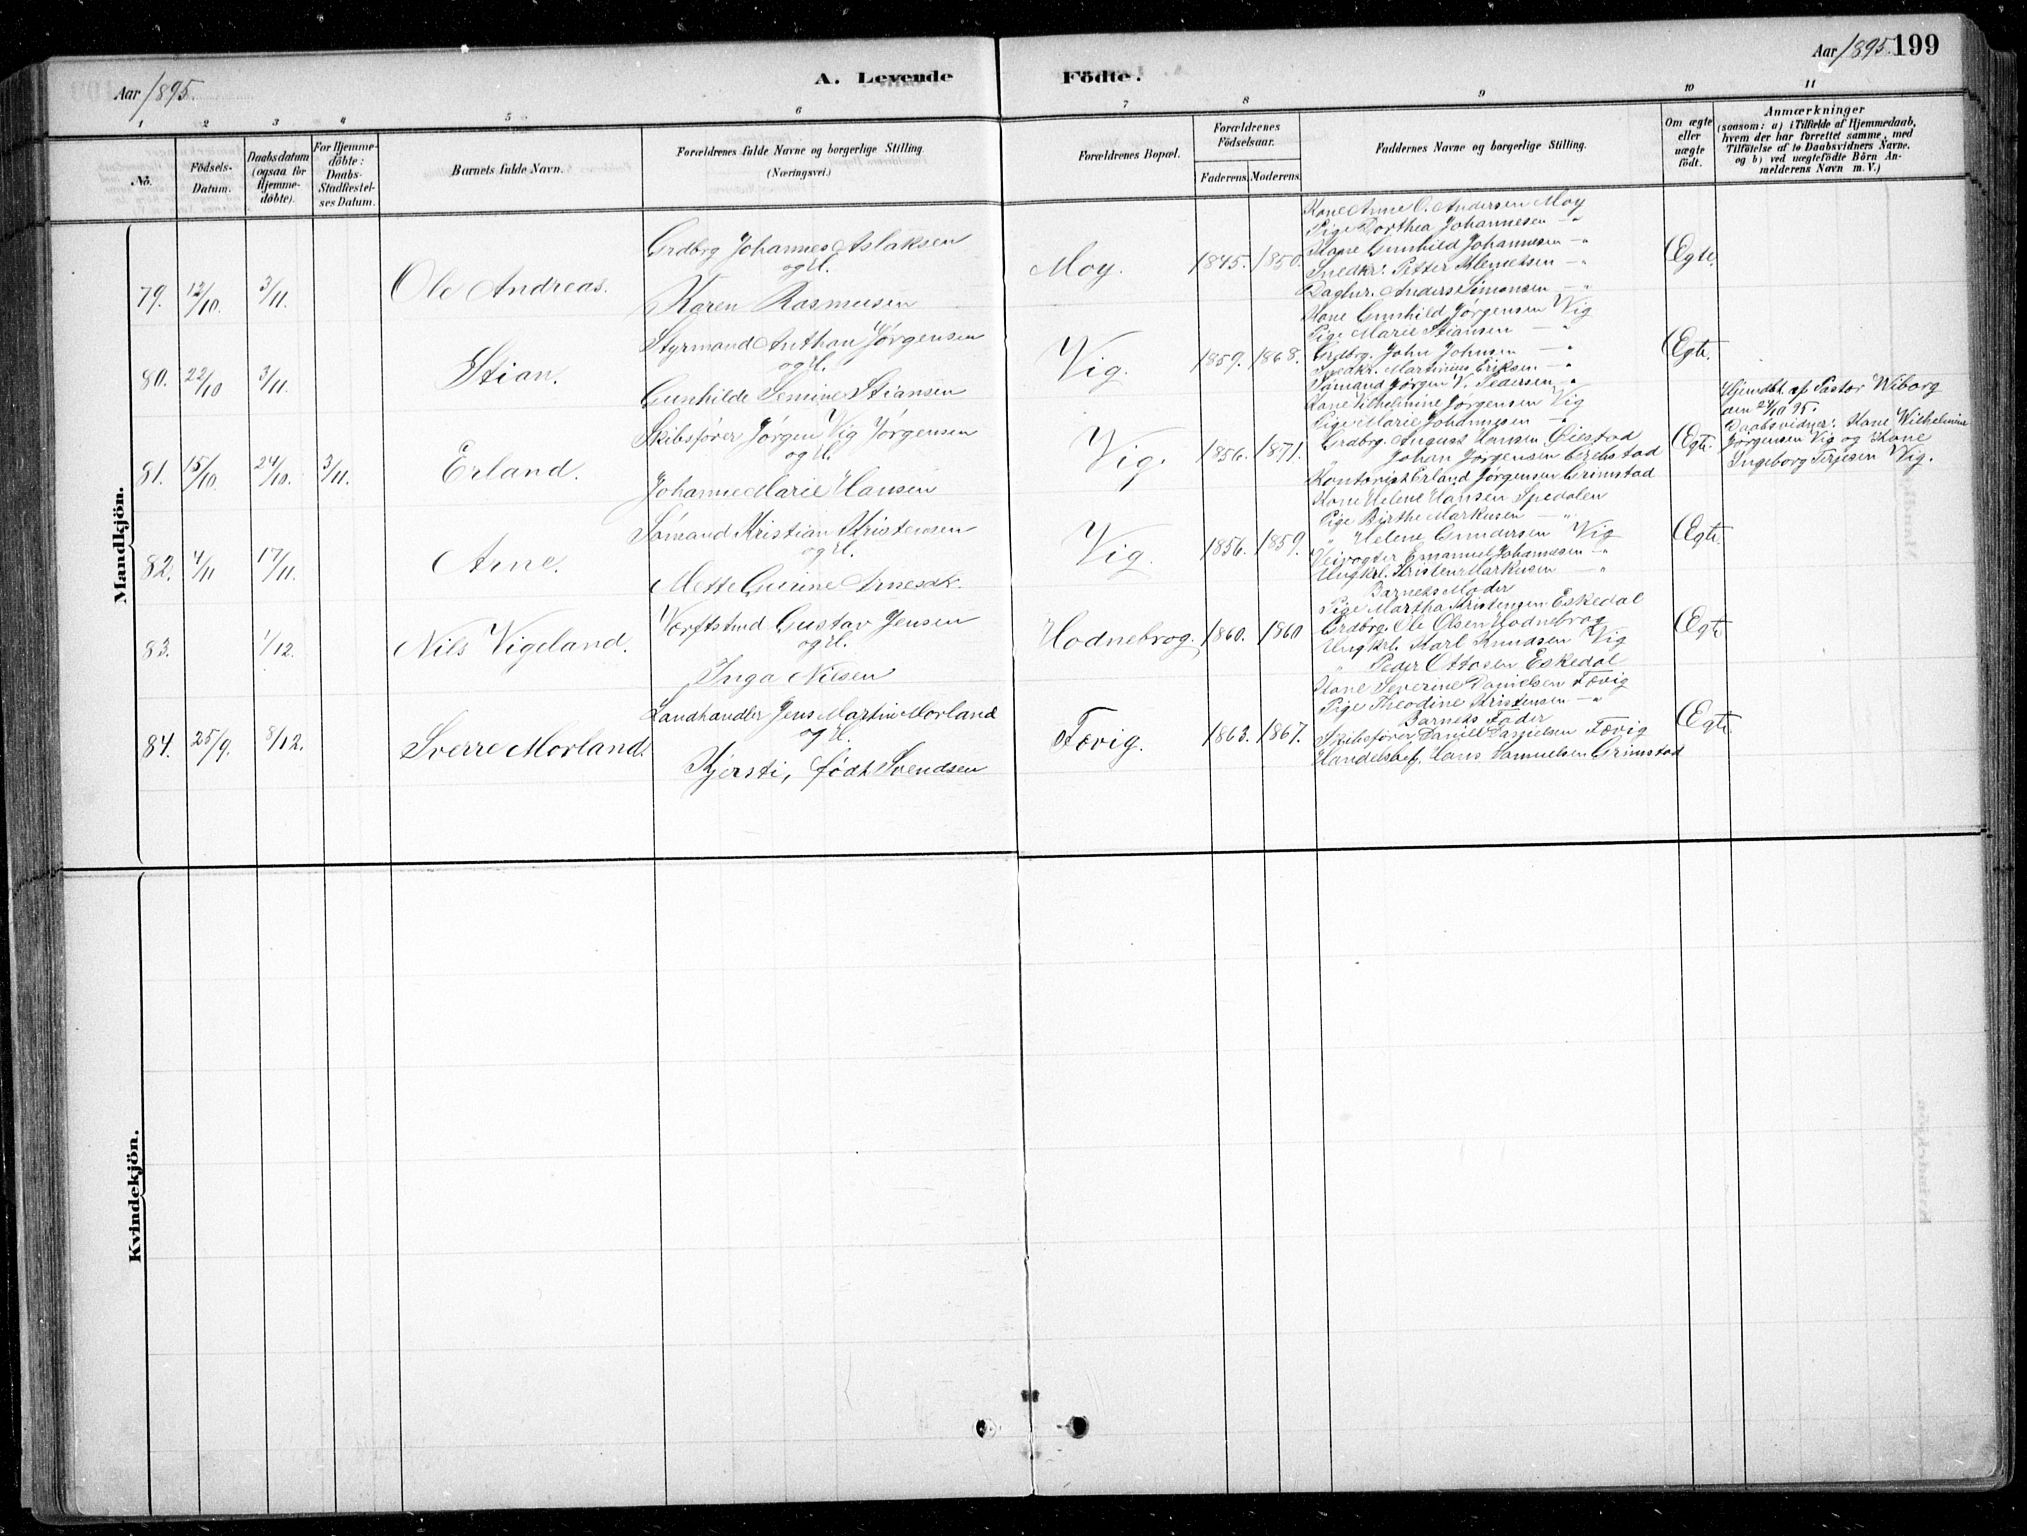 Aar 1895.
A. Levende Födte.
Aar 1895. 199
1 2 3 4 5 6 7 8 9 10 11
No.
Födsels-Datum.
Daabsdatum (ogsaa for Hjemme-døbte).
For Hjemme-døbte: Daabs-Stadfæstelses Datum.
Barnets fulde Navn.
Forældrenes fulde Navne og borgerlige Stilling.
(Næringsvei.)
Forældrenes Bopæl.
Forældrenes Födselsaar.
Faderens. Moderens.
Faddernes Navne og borgerlige Stilling.
Om ægte eller uægte født.
Anmærkninger
(saasom: a) i Tilfælde af Hjemmedaab, hvem der har forrettet samme, med Tilføielse af to Daabsvidners Navne, og b) ved uægtefødte Börn Anmelderens Navn m. V.)
Mandkjön.
79. 12/10 3/11. Ole Andreas.
Grdbrg Johannes Aslaksen
og H.
Karen Rasmusen
Moy. 1845. 1850.
Kone Anne O. Andersen Moy
Pige Dorthea Johannesen — "
Kone Gunhild Johannesen — "
Snedkr. Petter Klemetsen — "
Daglnr. Anders Simonsen — "
Ægte.
80. 22/10 3/11. Stian.
Styrmand Anthon Jørgensen
og H.
Gunhilde Semine Stiansen
Vig. 1859. 1868.
Kone Gunhild Jørgensen Vig
Pige Marie Stiansen — "
Grdbrg. John Johnsen — "
Snedkr. Martinius Eriksen — "
Sømand Jørgen V. Pedersen — "
Ægte.
81. 15/10 24/10. 3/11. Erland.
Skibsfører Jørgen Vig Jørgensen
og H.
Johanne Marie Hansen
Vig. 1856. 1871.
Kone Vilhelmine Jørgensen Vig
Pige Marie Johannesen — "
Grdbrg. August Hansen Øiestad
Johan Jørgensen
Kontorist Erland Jørgensen Grimstad
Ægte.
Hjemdbt. af Pastor Wiborg
den 24/10 95.
Daabsvidner: Kone Wilhelmine
Jørgensen Vig og Kone
Ingeborg Terjesen Vig.
82. 4/11 17/11. Arne.
Sømand Kristian Kristensen
og H.
Mette Gurine Arnesdt.
Vig. 1856. 1859.
Kone Helene Hansen Spedalen
Pige Birthe Markusen — "
" Helene Gundersen Vig
Veivogter Emanuel Johannesen — "
Ungkrl. Kristen Markusen — "
Ægte.
83. 1/12. Nils Vigeland.
Værftstmd Gustav Jensen
og H.
Inga Nilsen
Hodnebrog. 1860. 1860
Barnets Moder
Pige Martha Kristensen Eskedal
Grdbrg. Ole Olsen Hodnebrog
Ungkrl. Karl Knudsen Vig
" Peder Ottosen Eskedal
Ægte
84. 25/9. 8/12. Sverre Morland.
Landhandler Jens Martin Morland
og H.
Kjersti, født Svendsen
Fævig. 1863. 1867.
Kone Severine Danielsen Fævig
Pige Theodine Kristensen — "
Barnets Fader
Skibsfører Daniel Danielsen Fævig
Handelsbef. Hans Samuelsen Grimstad
Ægte.
Kvindekjön.